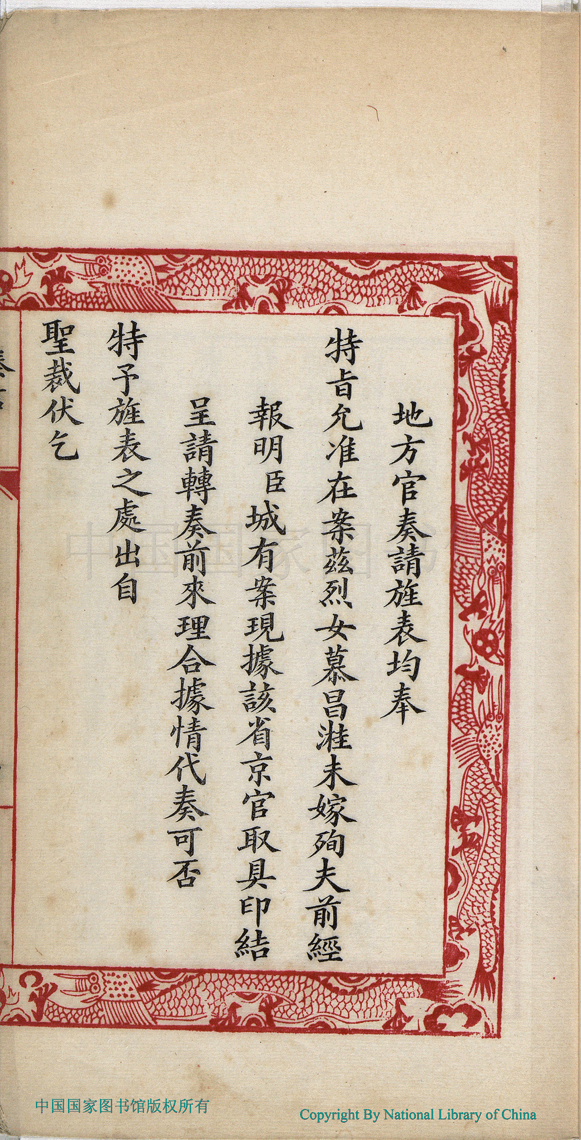 地方官奏請旌表均奉
特旨允准在案茲烈女慕昌溎未嫁殉夫前經
報明臣城有案現據該省京官取具印結
呈請轉奏前來理合據情代奏可否
特予旌表之處出自
聖裁伏乞
中国国家图书
中国国家图书馆版权所有
Copyright By National Library of China